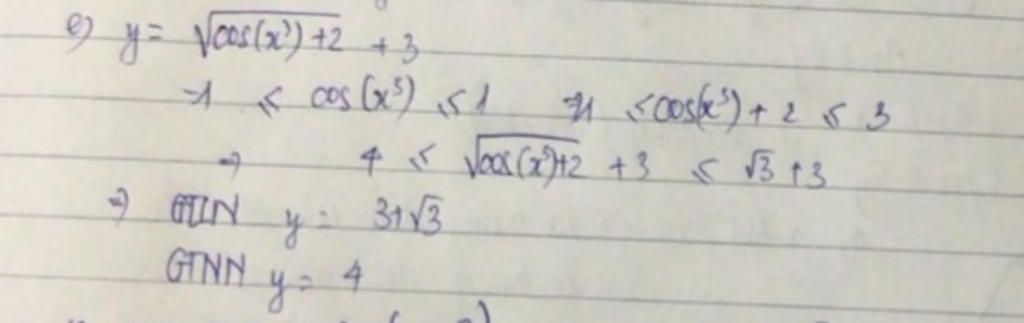 e) y = √(cos(x³)+2) + 3
-1 ≤ cos(x³) ≤ 1 ⇒ 1 ≤ cos(x³) + 2 ≤ 3
⇒ 4 ≤ √(cos(x³)+2) + 3 ≤ √3 + 3
⇒ GTLN y = 3+√3
GTNN y = 4